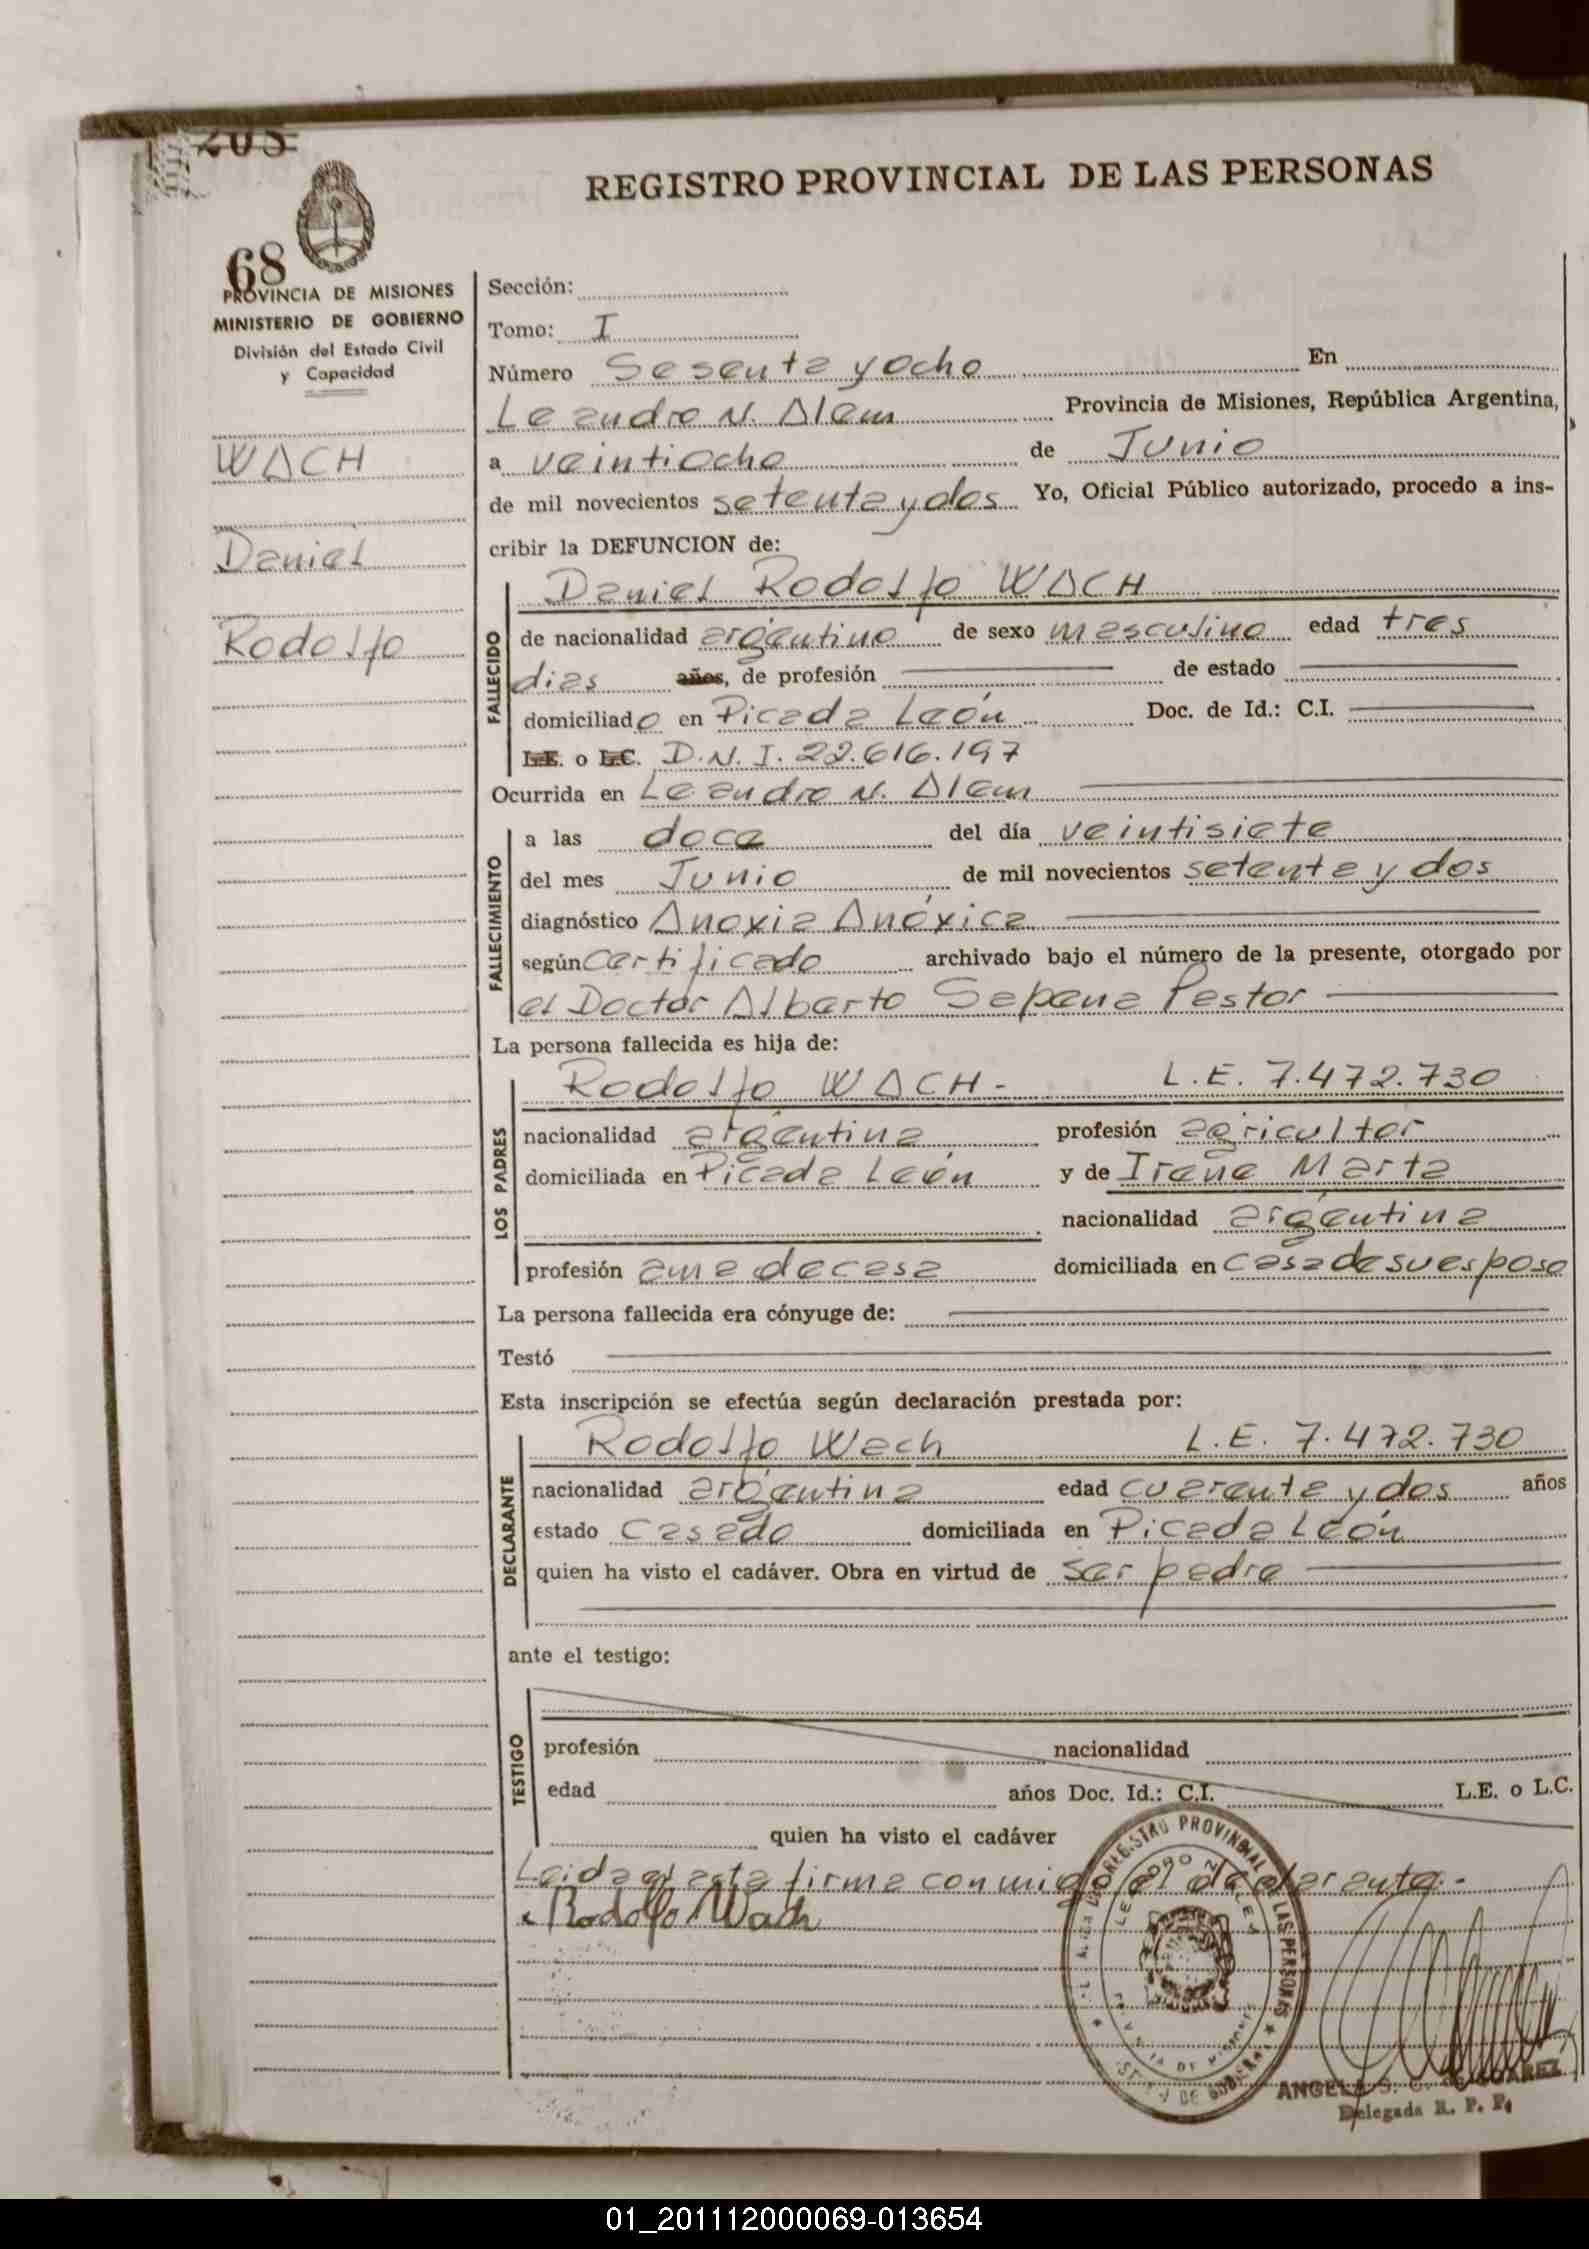 205
REGISTRO PROVINCIAL DE LAS PERSONAS
68
PROVINCIA DE MISIONES
MINISTERIO DE GOBIERNO
División del Estado Civil
y Capacidad
WACH
Daniel
Rodolfo
Sección:
Tomo: I
Número Sesenta y ocho En
Leandro N. Alem Provincia de Misiones, República Argentina,
a veintiocho de Junio
de mil novecientos setenta y dos Yo, Oficial Público autorizado, procedo a ins-
cribir la DEFUNCION de:
FALLECIDO
Daniel Rodolfo WACH
de nacionalidad argentino de sexo masculino edad tres
dias años, de profesión de estado
domiciliado en Picada León Doc. de Id.: C.I.
L.E. o L.C. D.N.I. 22.616.197
Ocurrida en Leandro N. Alem
FALLECIMIENTO
a las doce del día veintisiete
del mes Junio de mil novecientos setenta y dos
diagnóstico Anoxia Anóxica
según certificado archivado bajo el número de la presente, otorgado por
el Doctor Alberto Sapena Pastor
La persona fallecida es hija de:
LOS PADRES
Rodolfo WACH- L.E. 7.472.730
nacionalidad argentina profesión agricultor
domiciliada en Picada León y de Irene Marta
nacionalidad argentina
profesión ama de casa domiciliada en casa de su esposo
La persona fallecida era cónyuge de:
Testó
Esta inscripción se efectúa según declaración prestada por:
DECLARANTE
Rodolfo Wach L.E. 7.472.730
nacionalidad argentina edad cuarenta y dos años
estado casado domiciliada en Picada León
quien ha visto el cadáver. Obra en virtud de ser padre
ante el testigo:
TESTIGO
profesión nacionalidad
edad años Doc. Id.: C.I. L.E. o L.C.
quien ha visto el cadáver
Leida el acta firma conmigo el declarante.-
Rodolfo Wach
REGISTRO PROVINCIAL DE LAS PERSONAS
LEANDRO N. ALEM
PROVINCIA DE MISIONES
DE GOBIERNO
ANGELA S. SUAREZ
Delegada R. P. P.
01_201112000069-013654